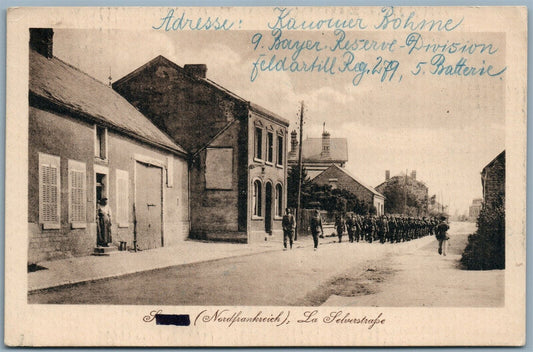 Adresse: Kanonier Böhme
9. Bayer. Reserve-Division
feldartill Reg. 279, 5. Batterie
S (Nordfrankreich), La Selverstraße